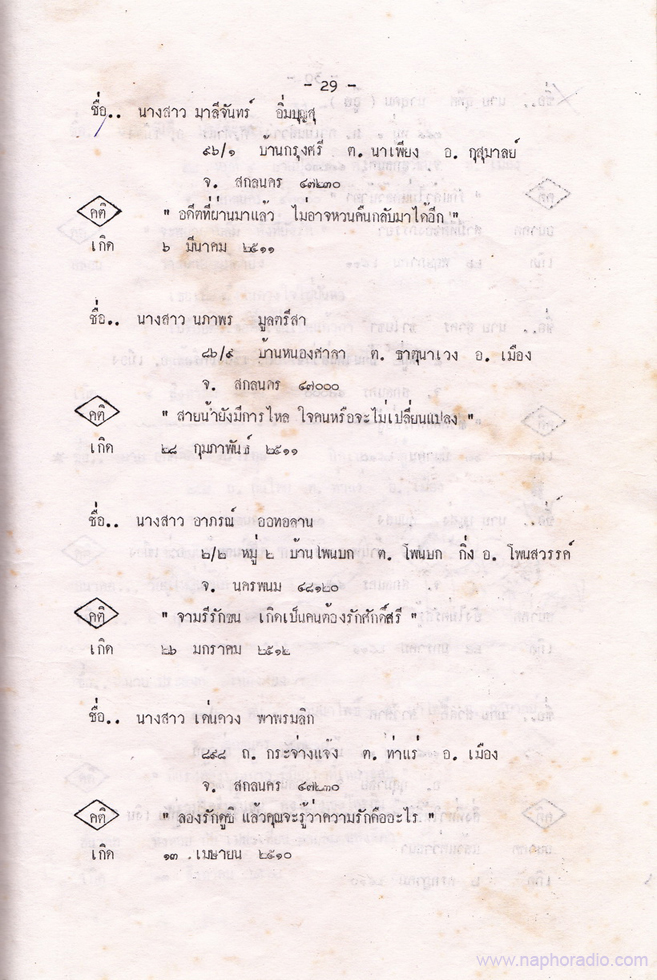 - 29 -
ชื่อ.. นางสาว มาลีจันทร์ อิ่มบุญสุ
๙๖/๑ บ้านกรุงศรี ต. นาเพียง อ. กุสุมาลย์
จ. สกลนคร ๔๗๒๓๐
คติ " อดีตที่ผ่านมาแล้ว ไม่อาจหวนคืนกลับมาได้อีก "
เกิด ๖ มีนาคม ๒๕๑๑
ชื่อ.. นางสาว นภาพร มูลตรีสา
๘๖/๙ บ้านหนองศาลา ต. ธาตุนาเวง อ. เมือง
จ. สกลนคร ๔๗๐๐๐
คติ " สายน้ำยังมีการไหล ใจคนหรือจะไม่เปลี่ยนแปลง "
เกิด ๒๘ กุมภาพันธ์ ๒๕๑๑
ชื่อ.. นางสาว อาภรณ์ ออทอลาน
๖/๒ หมู่ ๒ บ้านโพนบก ต. โพนบก กิ่ง อ. โพนสวรรค์
จ. นครพนม ๔๘๑๒๐
คติ " จามรีรักขน เกิดเป็นคนต้องรักศักดิ์ศรี "
เกิด ๒๖ มกราคม ๒๕๑๒
ชื่อ.. นางสาว เด่นดวง พาพรมลิก
๘๙๘ ถ. กระจ่างแจ้ง ต. ท่าแร่ อ. เมือง
จ. สกลนคร ๔๗๒๓๐
คติ " ลองรักดูซิ แล้วคุณจะรู้ว่าความรักคืออะไร "
เกิด ๑๓ เมษายน ๒๕๑๐
www.naphoradio.com